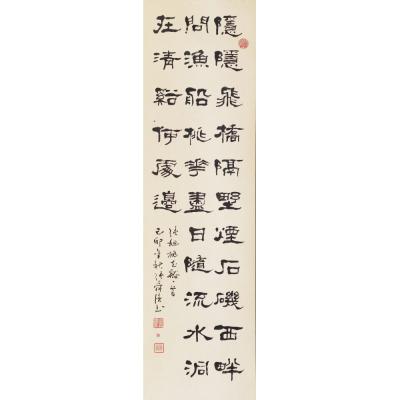 隱隱飛橋隔野煙石磯西畔
問漁船桃華盡日隨流水洞
在清谿何處邊
張旭桃花谿一首
己卯年秋